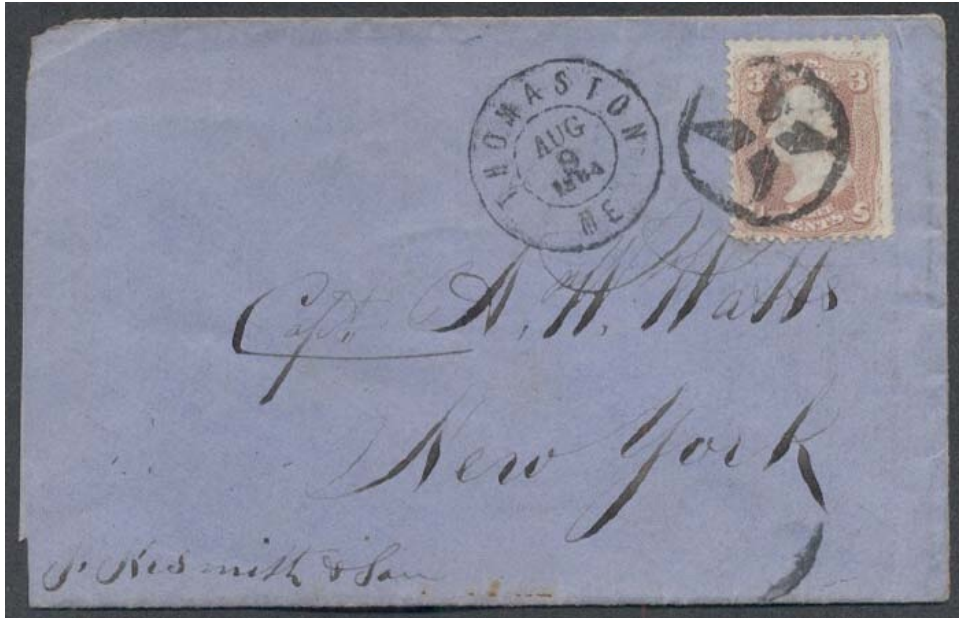 THOMASTON ME
AUG
9
1864
3 3
CENTS
Capt. A. W. Watts
New York
& Son